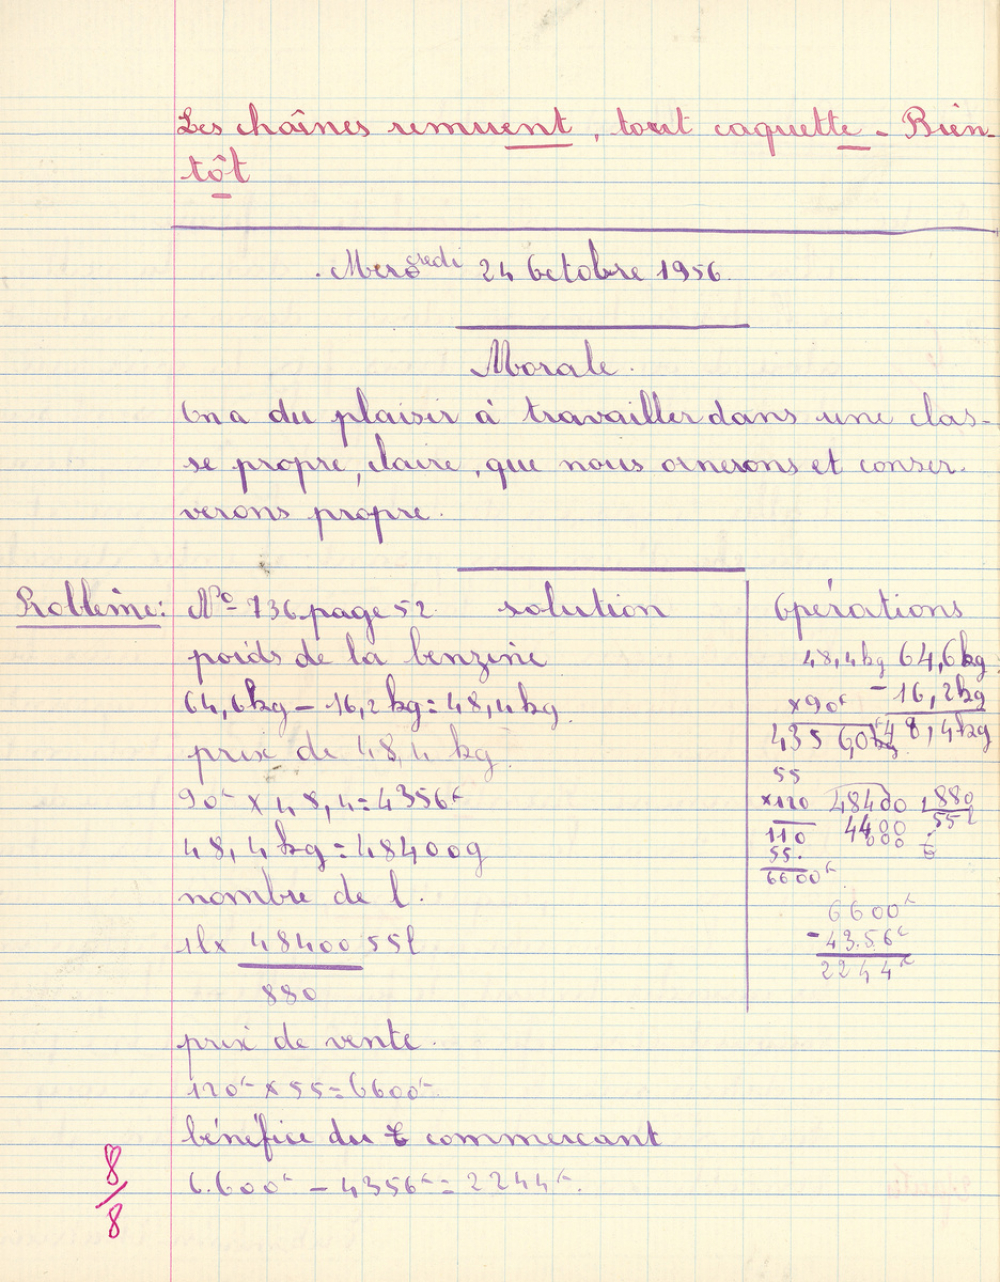 Les chaînes remuent, tout caquette - Bien-
tôt
Mercredi 24 Octobre 1956.
Morale.
On a du plaisir à travailler dans une clas-
se propre, claire, que nous ornerons et conser-
verons propre.
Problème: N° 736 page 52 solution
poids de la benzine
64,6kg - 16,2kg = 48,4kg.
prix de 48,4 kg.
90F x 48,4 = 4356F
48,4 kg = 48400g
nombre de l.
1l x 48400 55l
880
prix de vente.
120F x 55 = 6600F
bénéfice du commercant
6.600F - 4356F = 2244F.
8/8
Opérations
48,4kg 64,6kg
x90F - 16,2kg
4356,0 48,4kg
55
x120 48400 880
110 4400 55l
55. 000
6600F
6600F
- 4356F
2244F